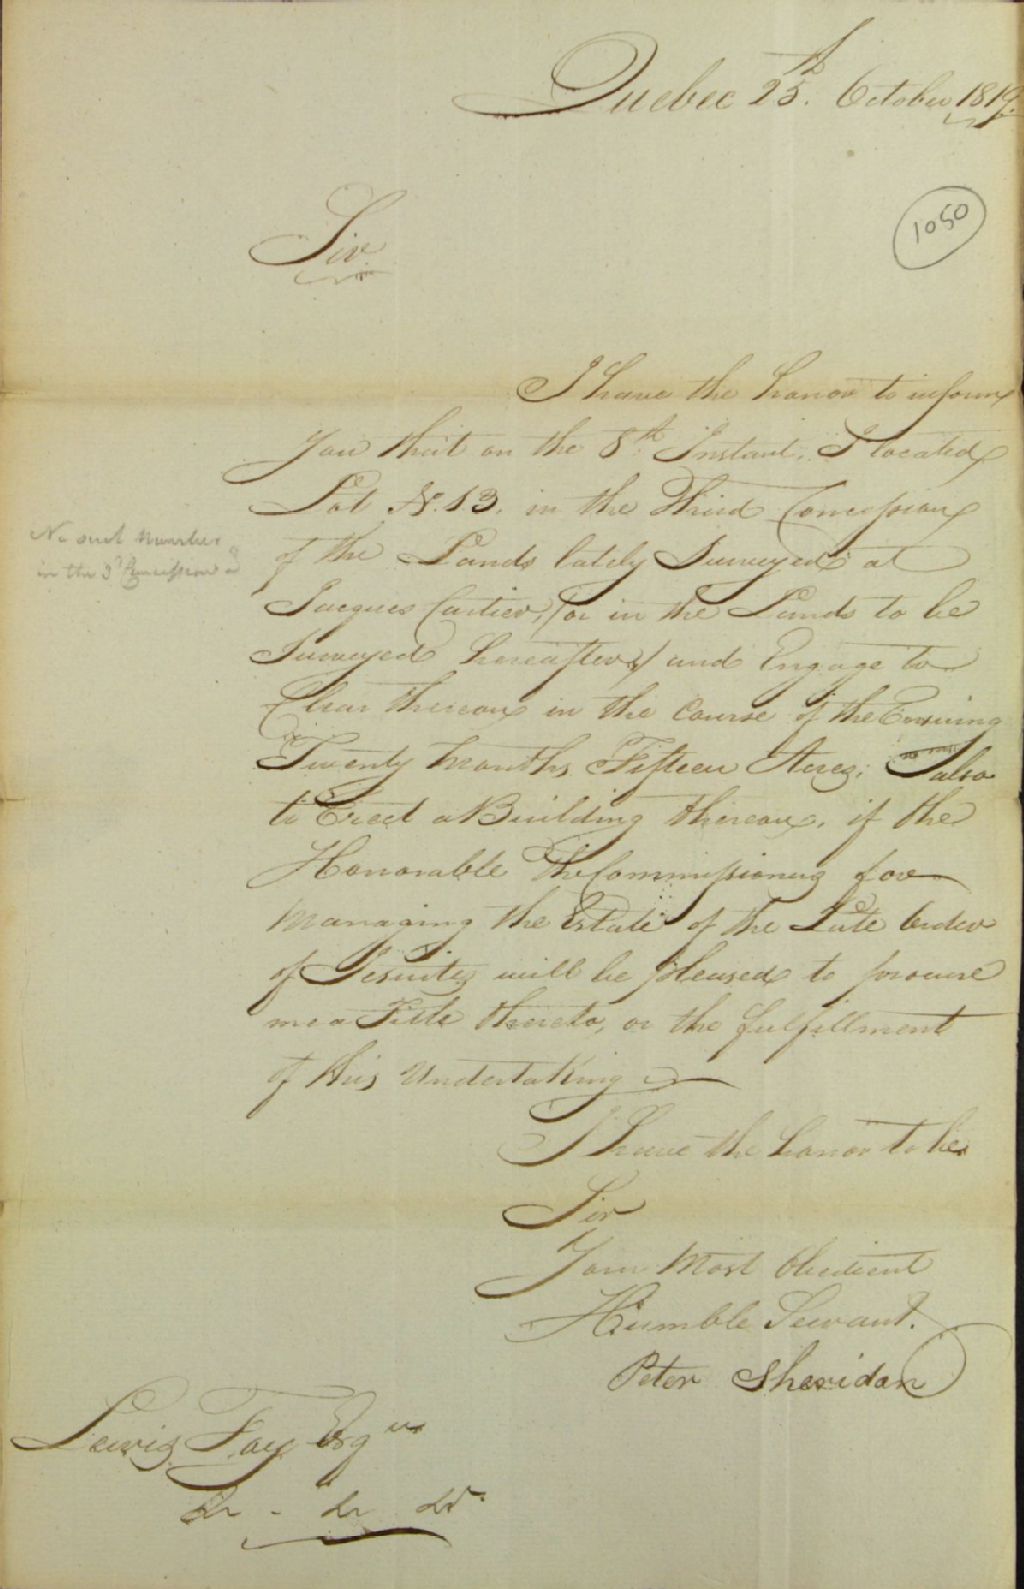 Quebec 25th. October 1819.
1050
Sir
I have the honor to inform
You that on the 8th. Instant, I located
Lot N. 13. in the Third Concession
of the Lands lately Surveyed at
Jacques Cartier, (or in the Lands to be
Surveyed hereafter) and Engage to
Clear thereon in the Course of the Ensuing
Twenty Months, Fifteen Acres; I also
to Erect a Building thereon, if the
Honorable The Commissioners for
Managing the Estate of the Late Order
of Jesuites will be pleased to procure
me a Title thereto, on the fulfillment
of this Undertaking
No such Number
in the 3d Concession
I have the honor to be
Sir
Your Most Obedient
Humble Servant.
Peter Sheridan
Lewis Foy Esqre
&c - &c &c.